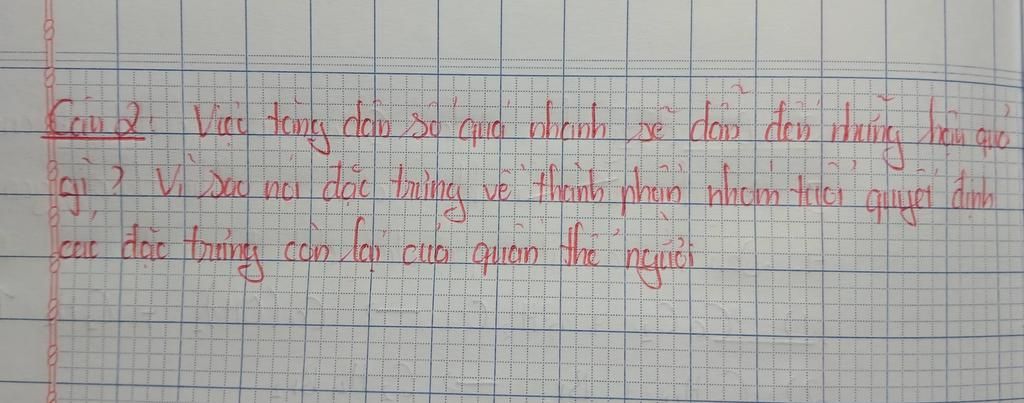 Câu 2: Việc tăng dân số quá nhanh sẽ dẫn đến những hậu quả
gì? Vì sao nói đặc trưng về thành phần nhóm tuổi quyết định
các đặc trưng còn lại của quần thể người